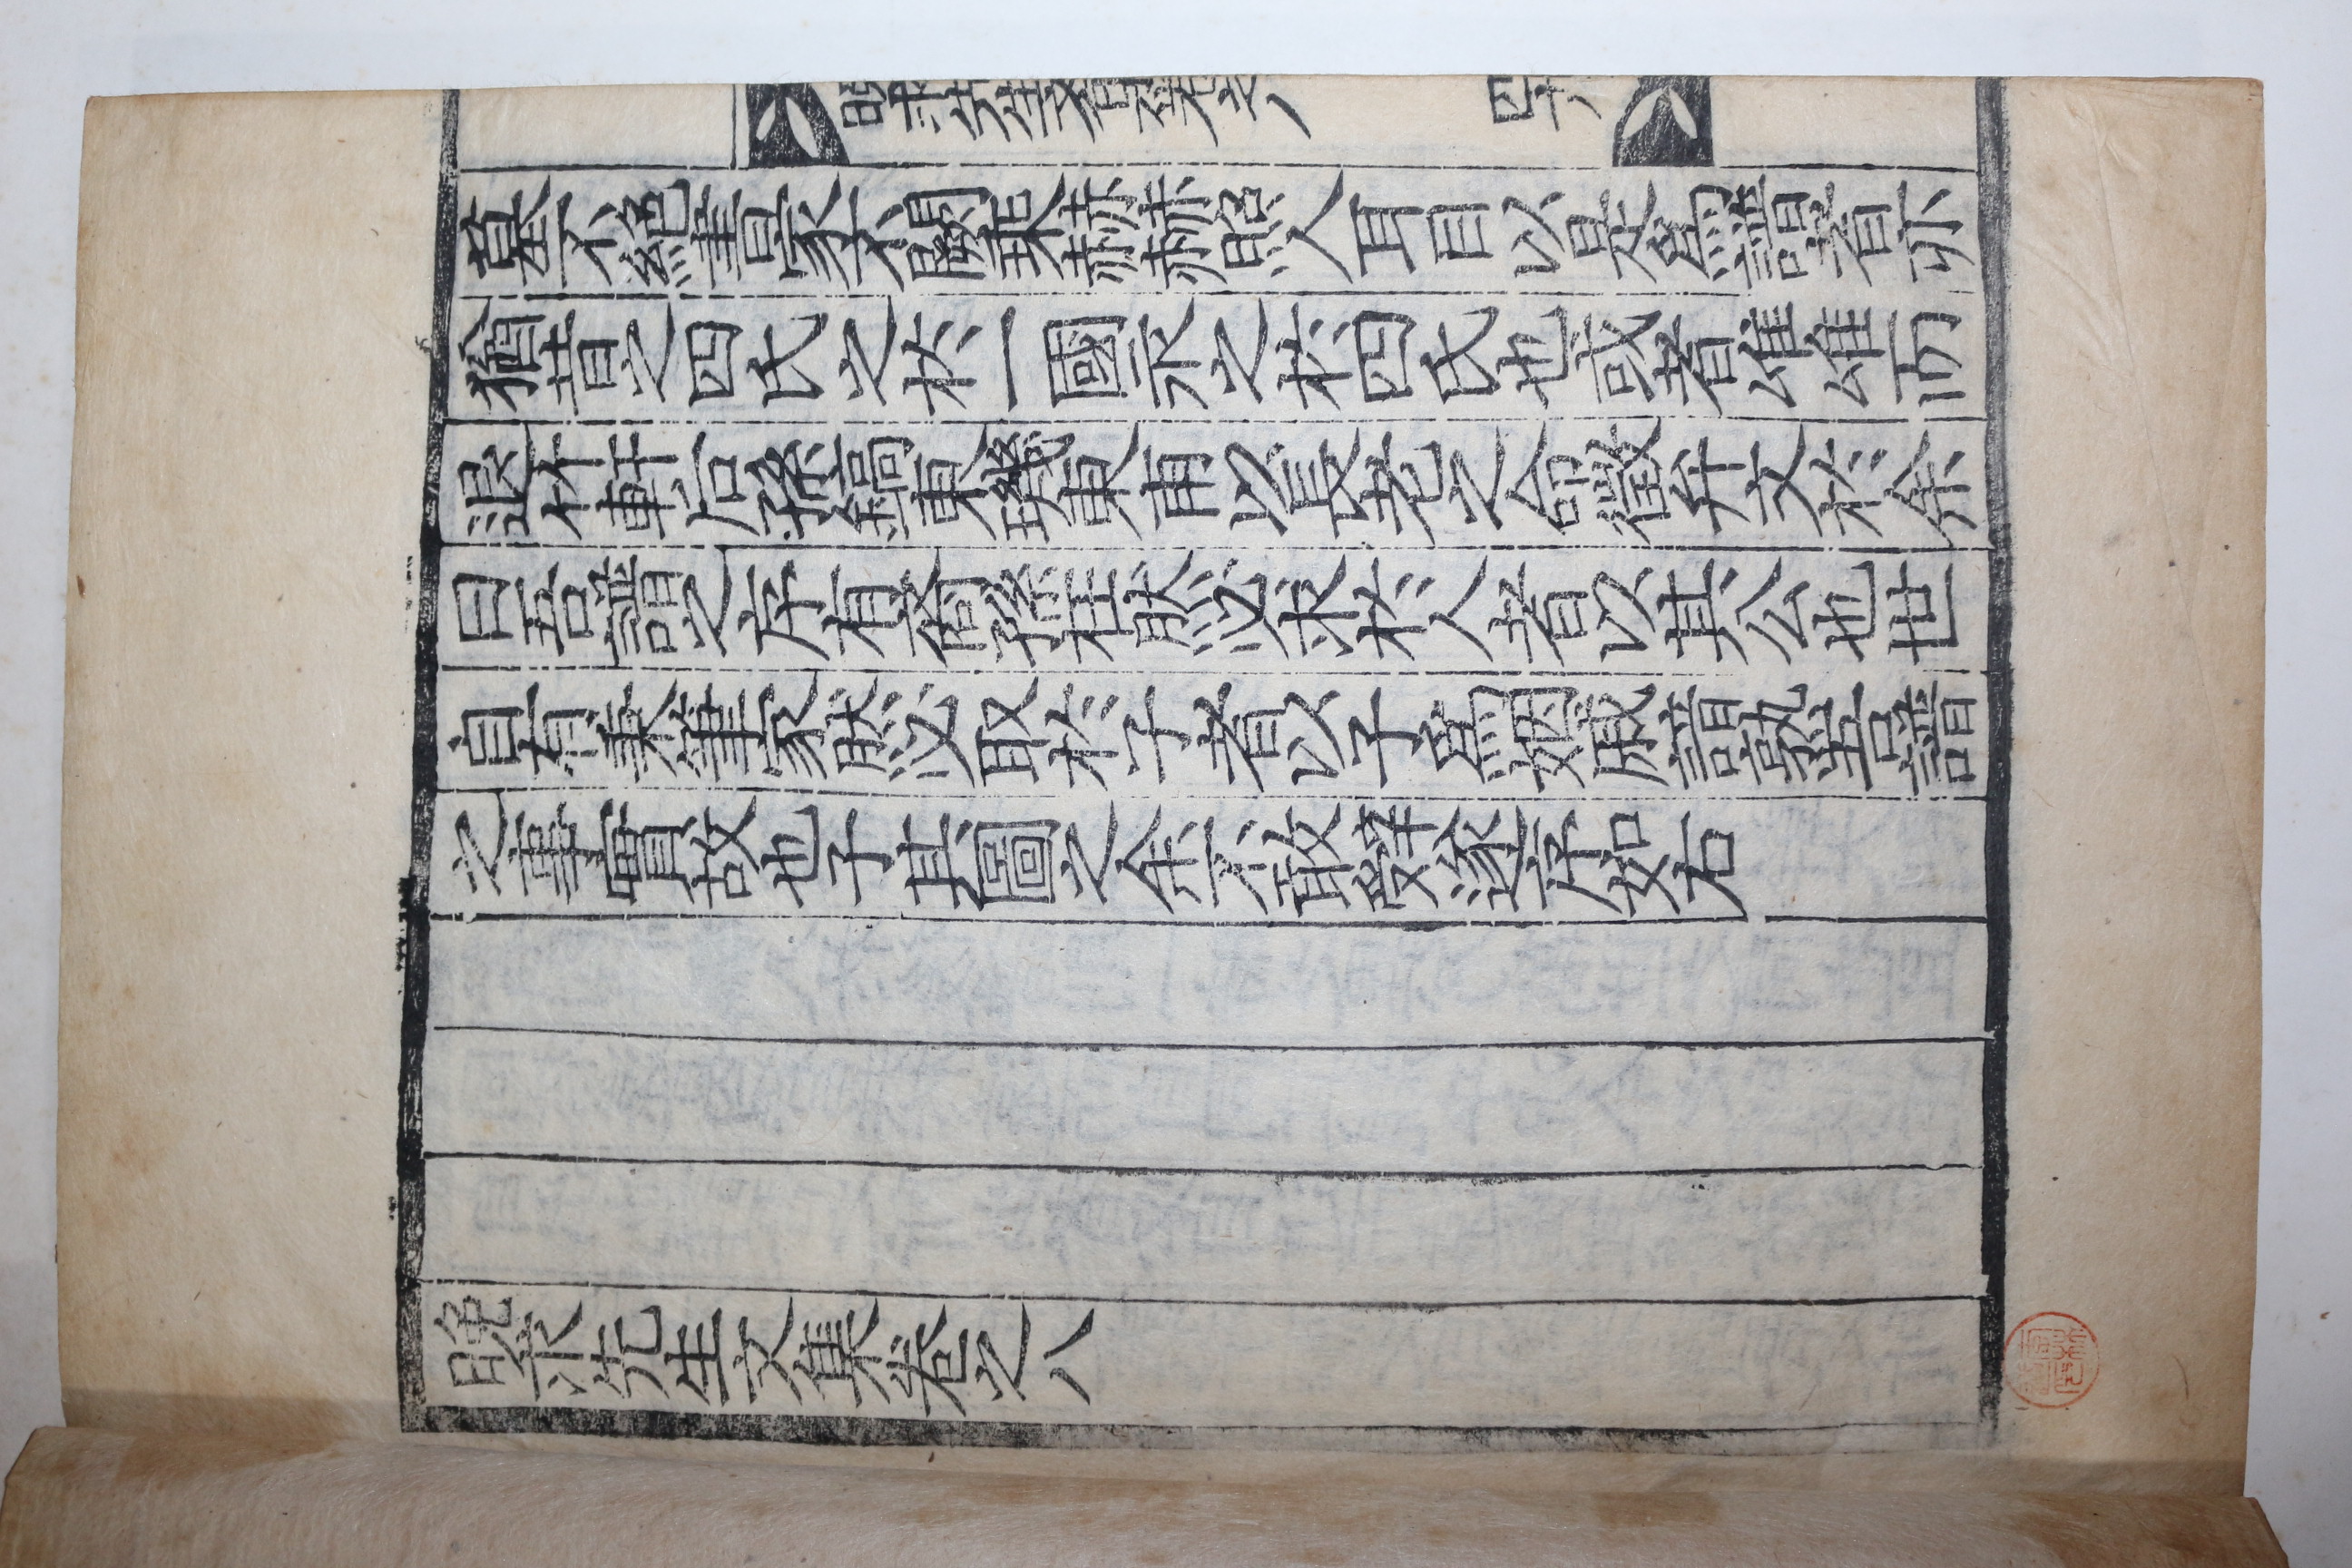 晩求先生文集卷之八 四十八
墓不絶書家不闕乘赫赫照人耳目以是爲譜者亦
猶昔之四氏之於一國永之於四氏也或者唯唯而
退竹軒后孫鎬東璣東甫以長老之命徵弁文於余
曰吾譜之序有裔孫在然必求於人者以其公也世
自有秉筆家然必取於子者以子爲姻戚諳孰吾譜
之事實故也子其圖之余不敢辭遂序如右
晩求先生文集卷之八